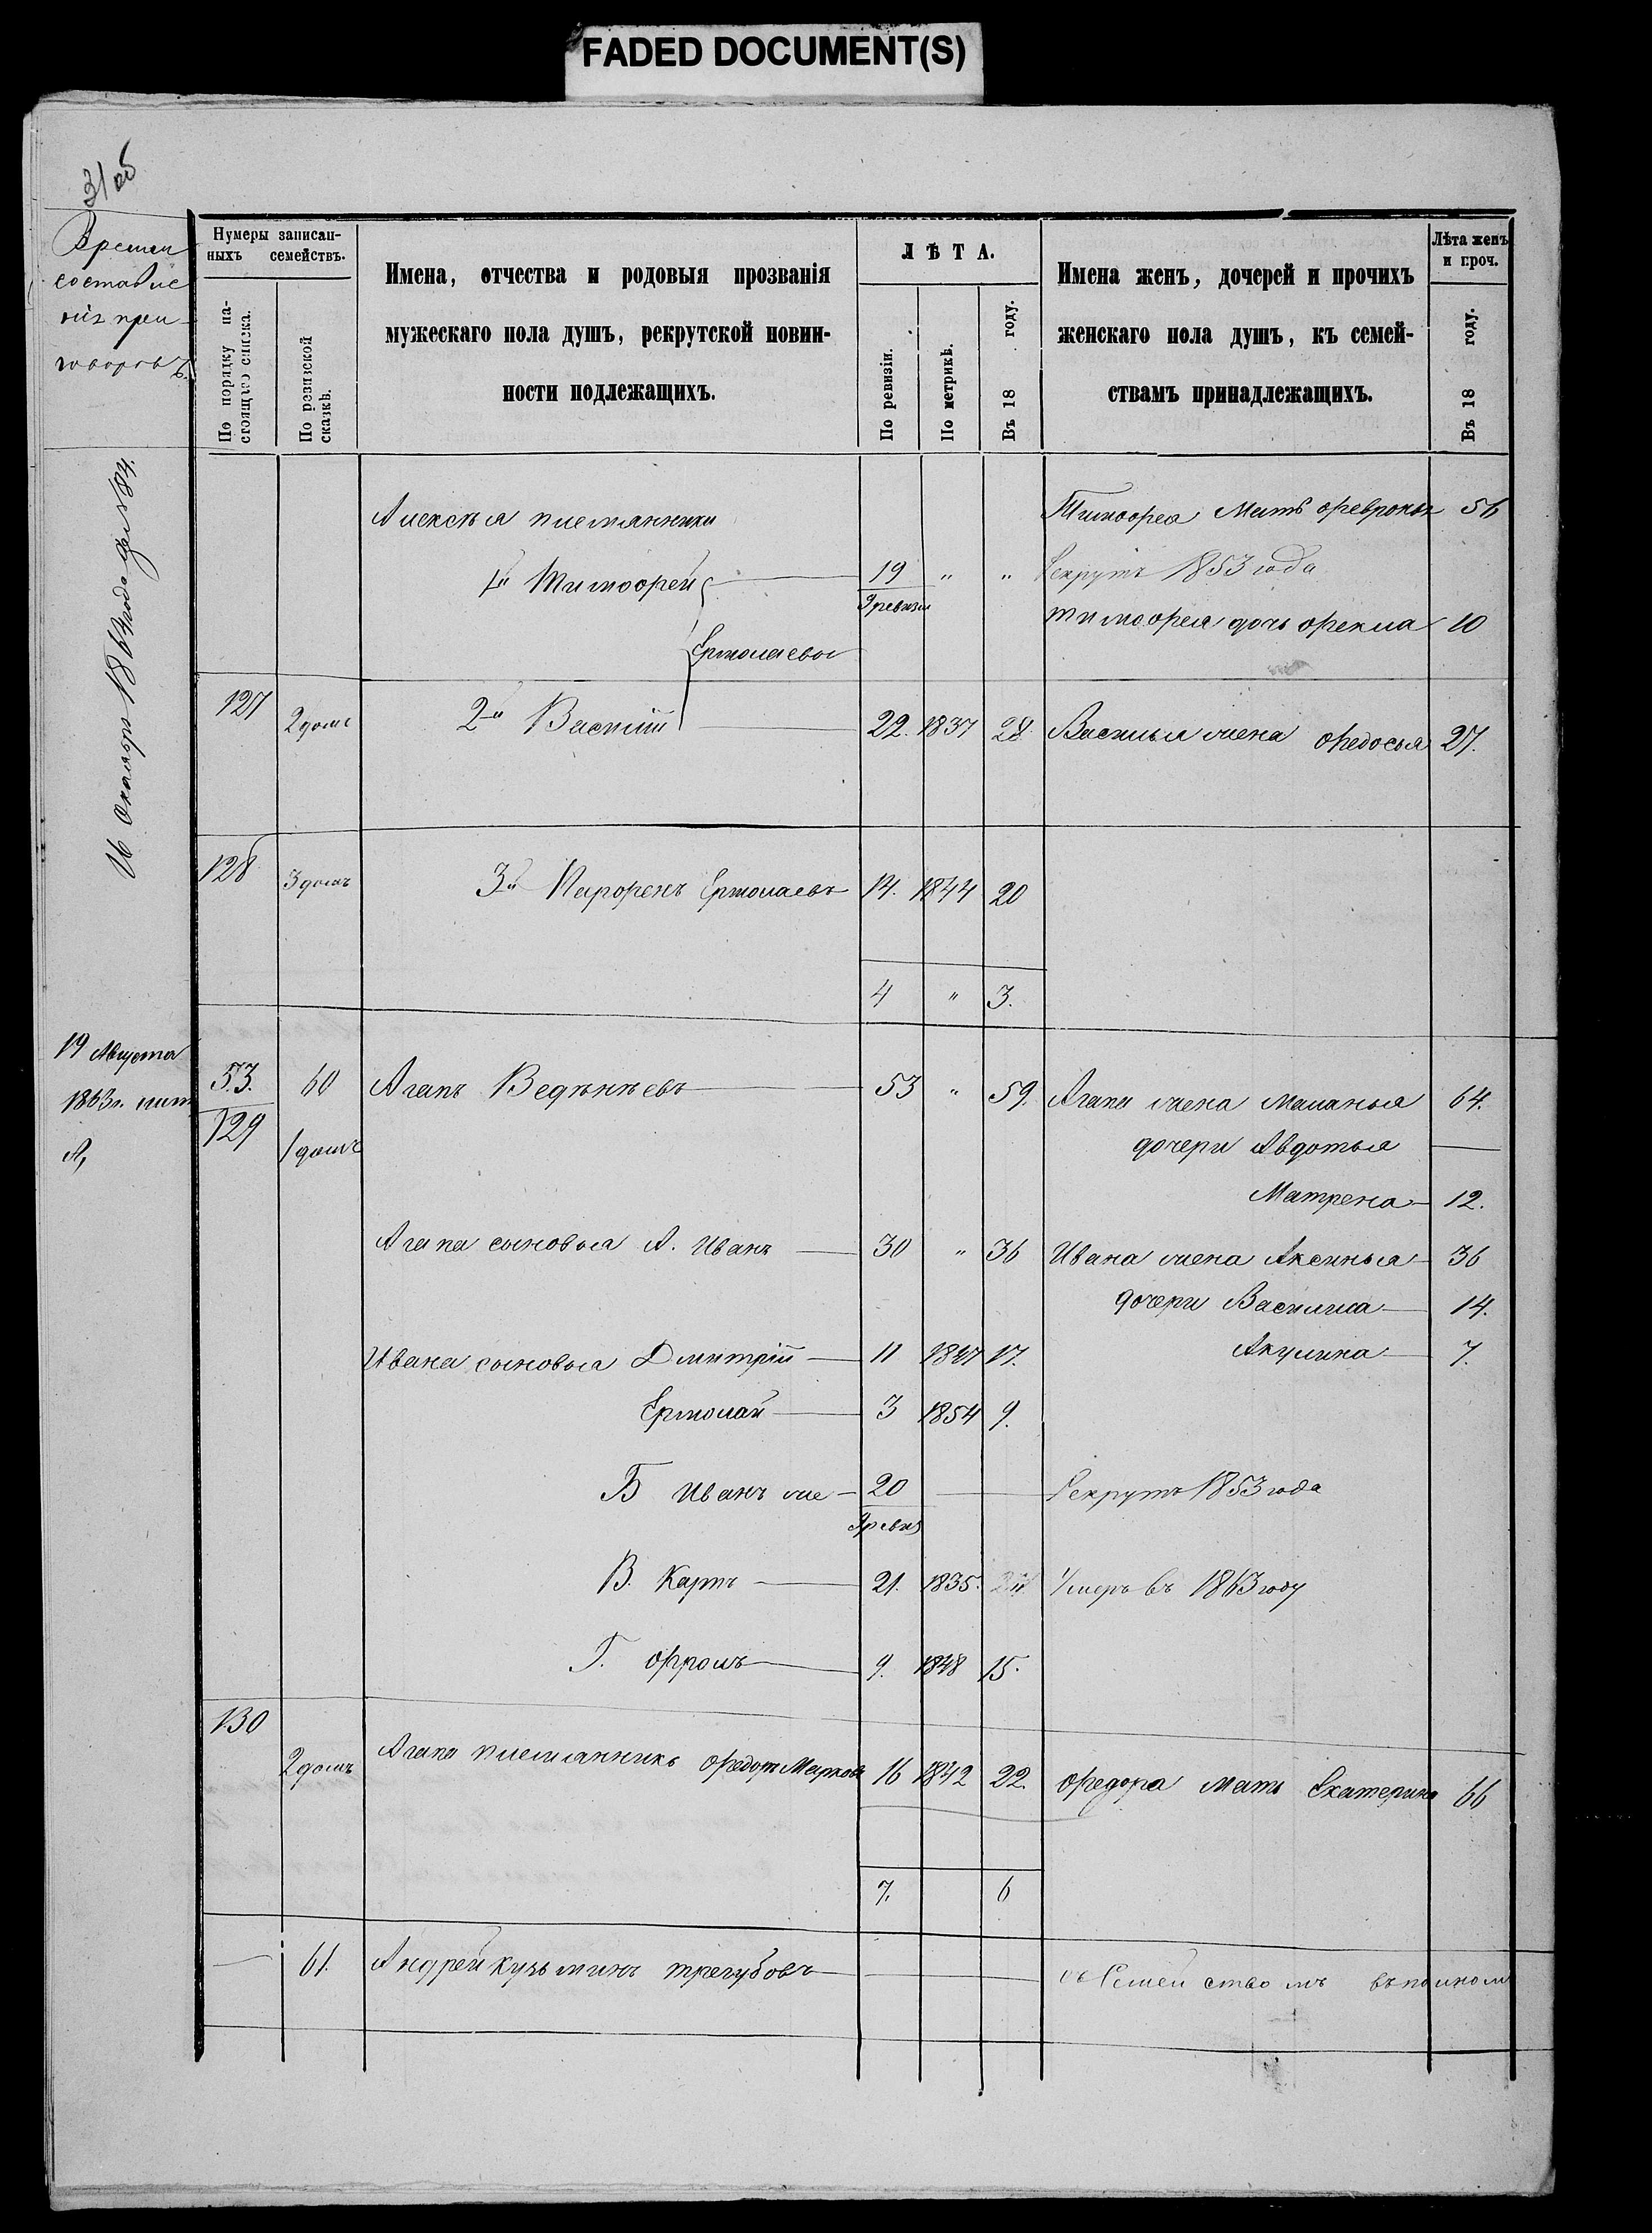 FADED DOCUMENT(S)
31 об
Времен
составле
нія при-
говоровъ.
Нумеры записан-
ныхъ семействъ.
По порядку на-
стоящаго списка.
По ревизской
сказкѣ.
Имена, отчества и родовыя прозванія
мужескаго пола душъ, рекрутской повин-
ности подлежащихъ.
ЛѢТА.
По ревизіи.
По метрикѣ.
Въ 18 году.
Имена женъ, дочерей и прочихъ
женскаго пола душъ, къ семей-
ствамъ принадлежащихъ.
Лѣта женъ
и проч.
Въ 18 году.
16 Октября 1864 года
Алексѣя племянники
Тимофея Мать 56
1й Тимофей 19 " " Рекрутъ 1853 года
9 ревизіи
Тимофея дочь Фекла 10
Ермолаевы
127 2 домъ 2й Василій 22. 1837 28 Василья жена Федосья 27.
128 3 домъ 3й Парфенъ Ермолаевъ 14. 1844 20
4 " 3.
19 Августа
1863 г. лит
А,
53. 60 Агапъ Веденѣевъ 53 " 59. Агапа жена Маланья 64.
129 1 домъ
дочери Авдотья —
Матрена 12.
Агапа сыновья А. Иванъ 30 " 36 Ивана жена Аксинья 36
дочери Василиса 14.
Ивана сыновья Дмитрій 11 1847 17. Акулина 7.
Ермолай 3 1854 9.
Б Иванъ же 20 — Рекрутъ 1853 года
9 ревиз
В. Карпъ 21. 1835. Умеръ въ 1863 году
Г. Фролъ 9. 1848 15.
130
2 домъ Агапа племянникъ Федоръ Марковъ 16 1842 22. Федора мать Екатерина 66
7. 6
— 61. Андрей Кузьминъ Трегубовъ — съ Семействомъ въ полном